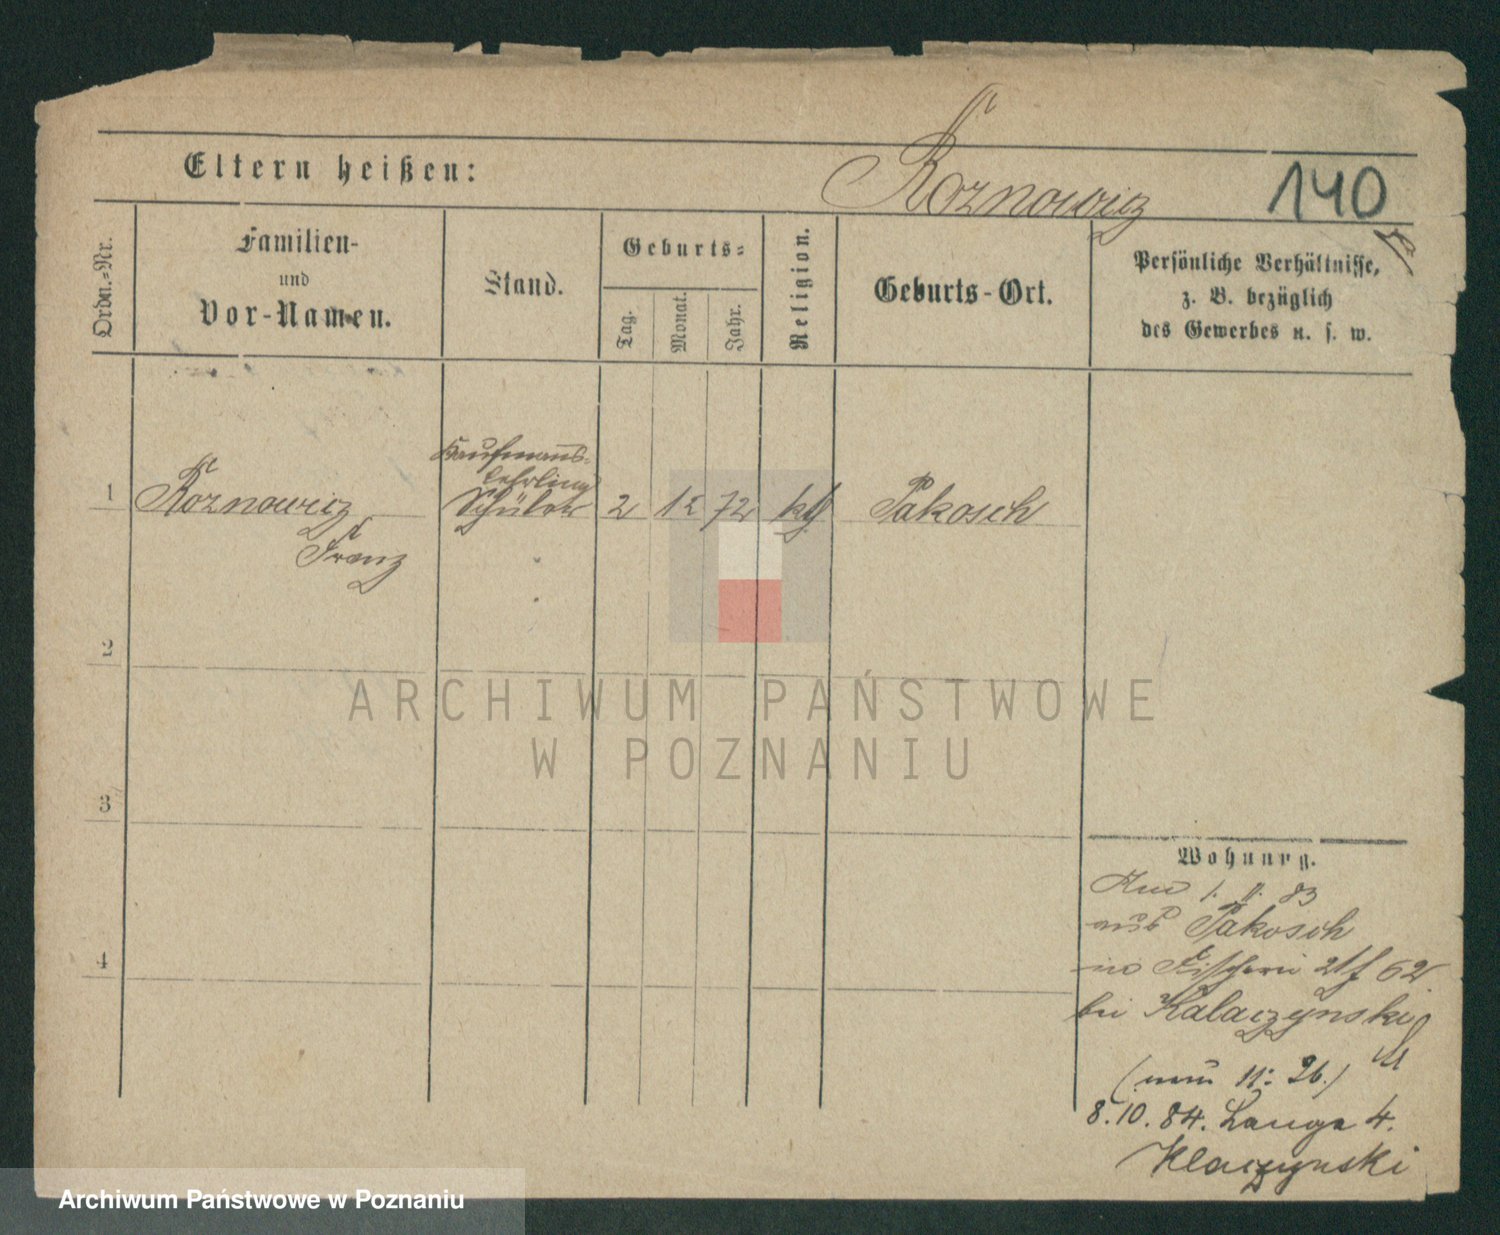 Eltern heißen:
Roznowicz
140
Ordn.-Nr.
Familien-
und
Vor-Namen.
Stand.
Geburts-
Tag.
Monat.
Jahr.
Religion.
Geburts-Ort.
Persönliche Verhältnisse,
z. B. bezüglich
des Gewerbes u. s. w.
Kaufmanns-
lehrling
1 Roznowicz Schüler 2 12 72 kth Pakosch
Franz
2
3
4
ARCHIWUM PAŃSTWOWE
W POZNANIU
Wohnung.
1. 11. 83
aus Pakosch
Fischerei 62
bei Kalaczynski
(neu 26.)
8.10.84. Lange 4.
Klaczynski
Archiwum Państwowe w Poznaniu